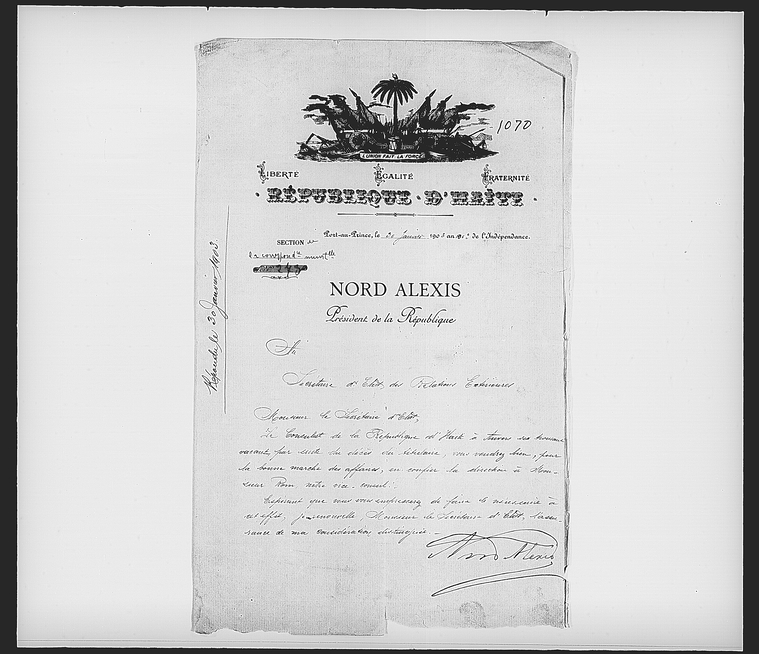 1070
L'UNION FAIT LA FORCE
LIBERTÉ ÉGALITÉ FRATERNITÉ
RÉPUBLIQUE D'HAÏTI
Port-au-Prince, le 30 Janvier 1903 an de l'Indépendance.
SECTION de
la correspond
Répondu le 30 Janvier 1903
NORD ALEXIS
Président de la République
Au
Secrétaire d'Etat des Relations Extérieures
Monsieur le Secrétaire d'Etat,
Le Consulat de la République d'Haïti à Anvers se trouvant
vacant, par suite du décès du titulaire, vous voudrez bien, pour
la bonne marche des affaires, en confier la direction à Mon-
sieur notre vice-consul.
Espérant que vous vous empresserez de faire le nécessaire à
cet effet, je renouvelle Monsieur le Secrétaire d'Etat, l'assu-
rance de ma considération distinguée.
Nord Alexis